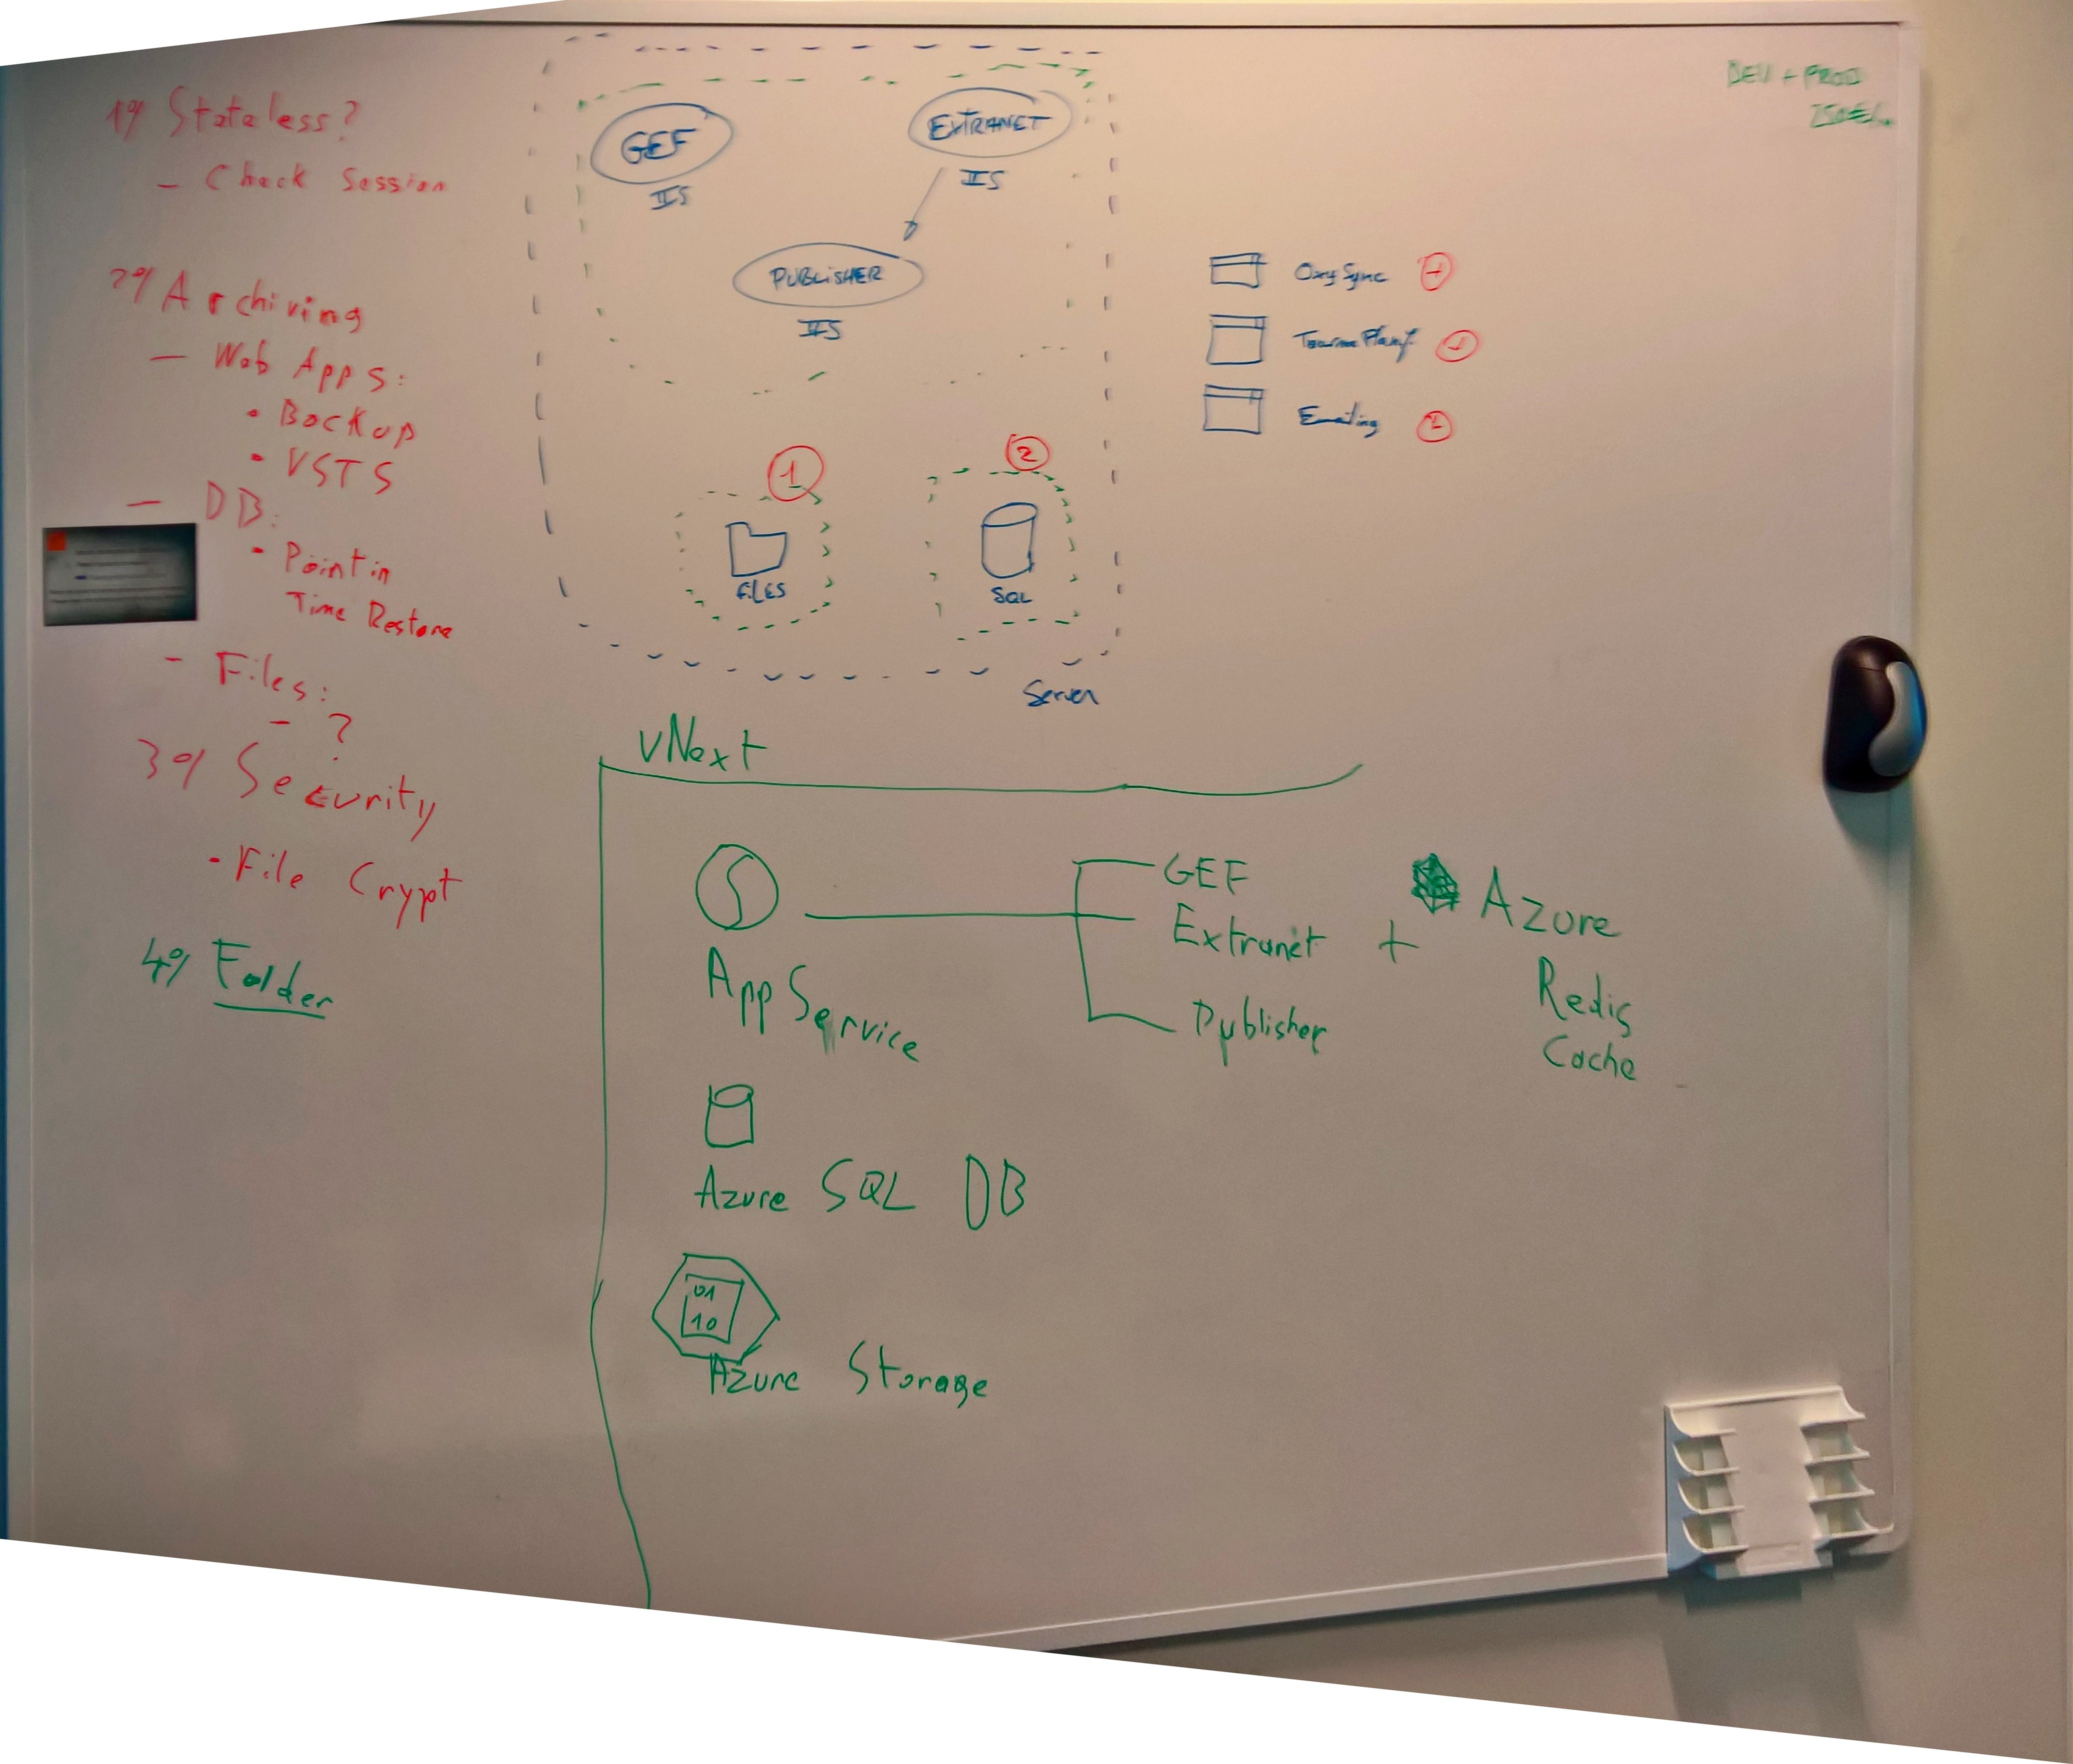 1°/ Stateless?
- Check Session
2°/ Archiving
- Web Apps:
• Backup
• VSTS
- DB:
• Point in
Time Restore
- Files:
- ?
3°/ Security
- File Crypt
4°/ Folder
GEF
IIS
EXTRANET
IIS
PUBLISHER
IIS
1
FILES
2
SQL
Server
OxySync
Emailing
DEV + PROD
vNext
App Service
GEF
Extranet
Publisher
+
Azure
Redis
Cache
Azure SQL DB
01
10
Azure Storage